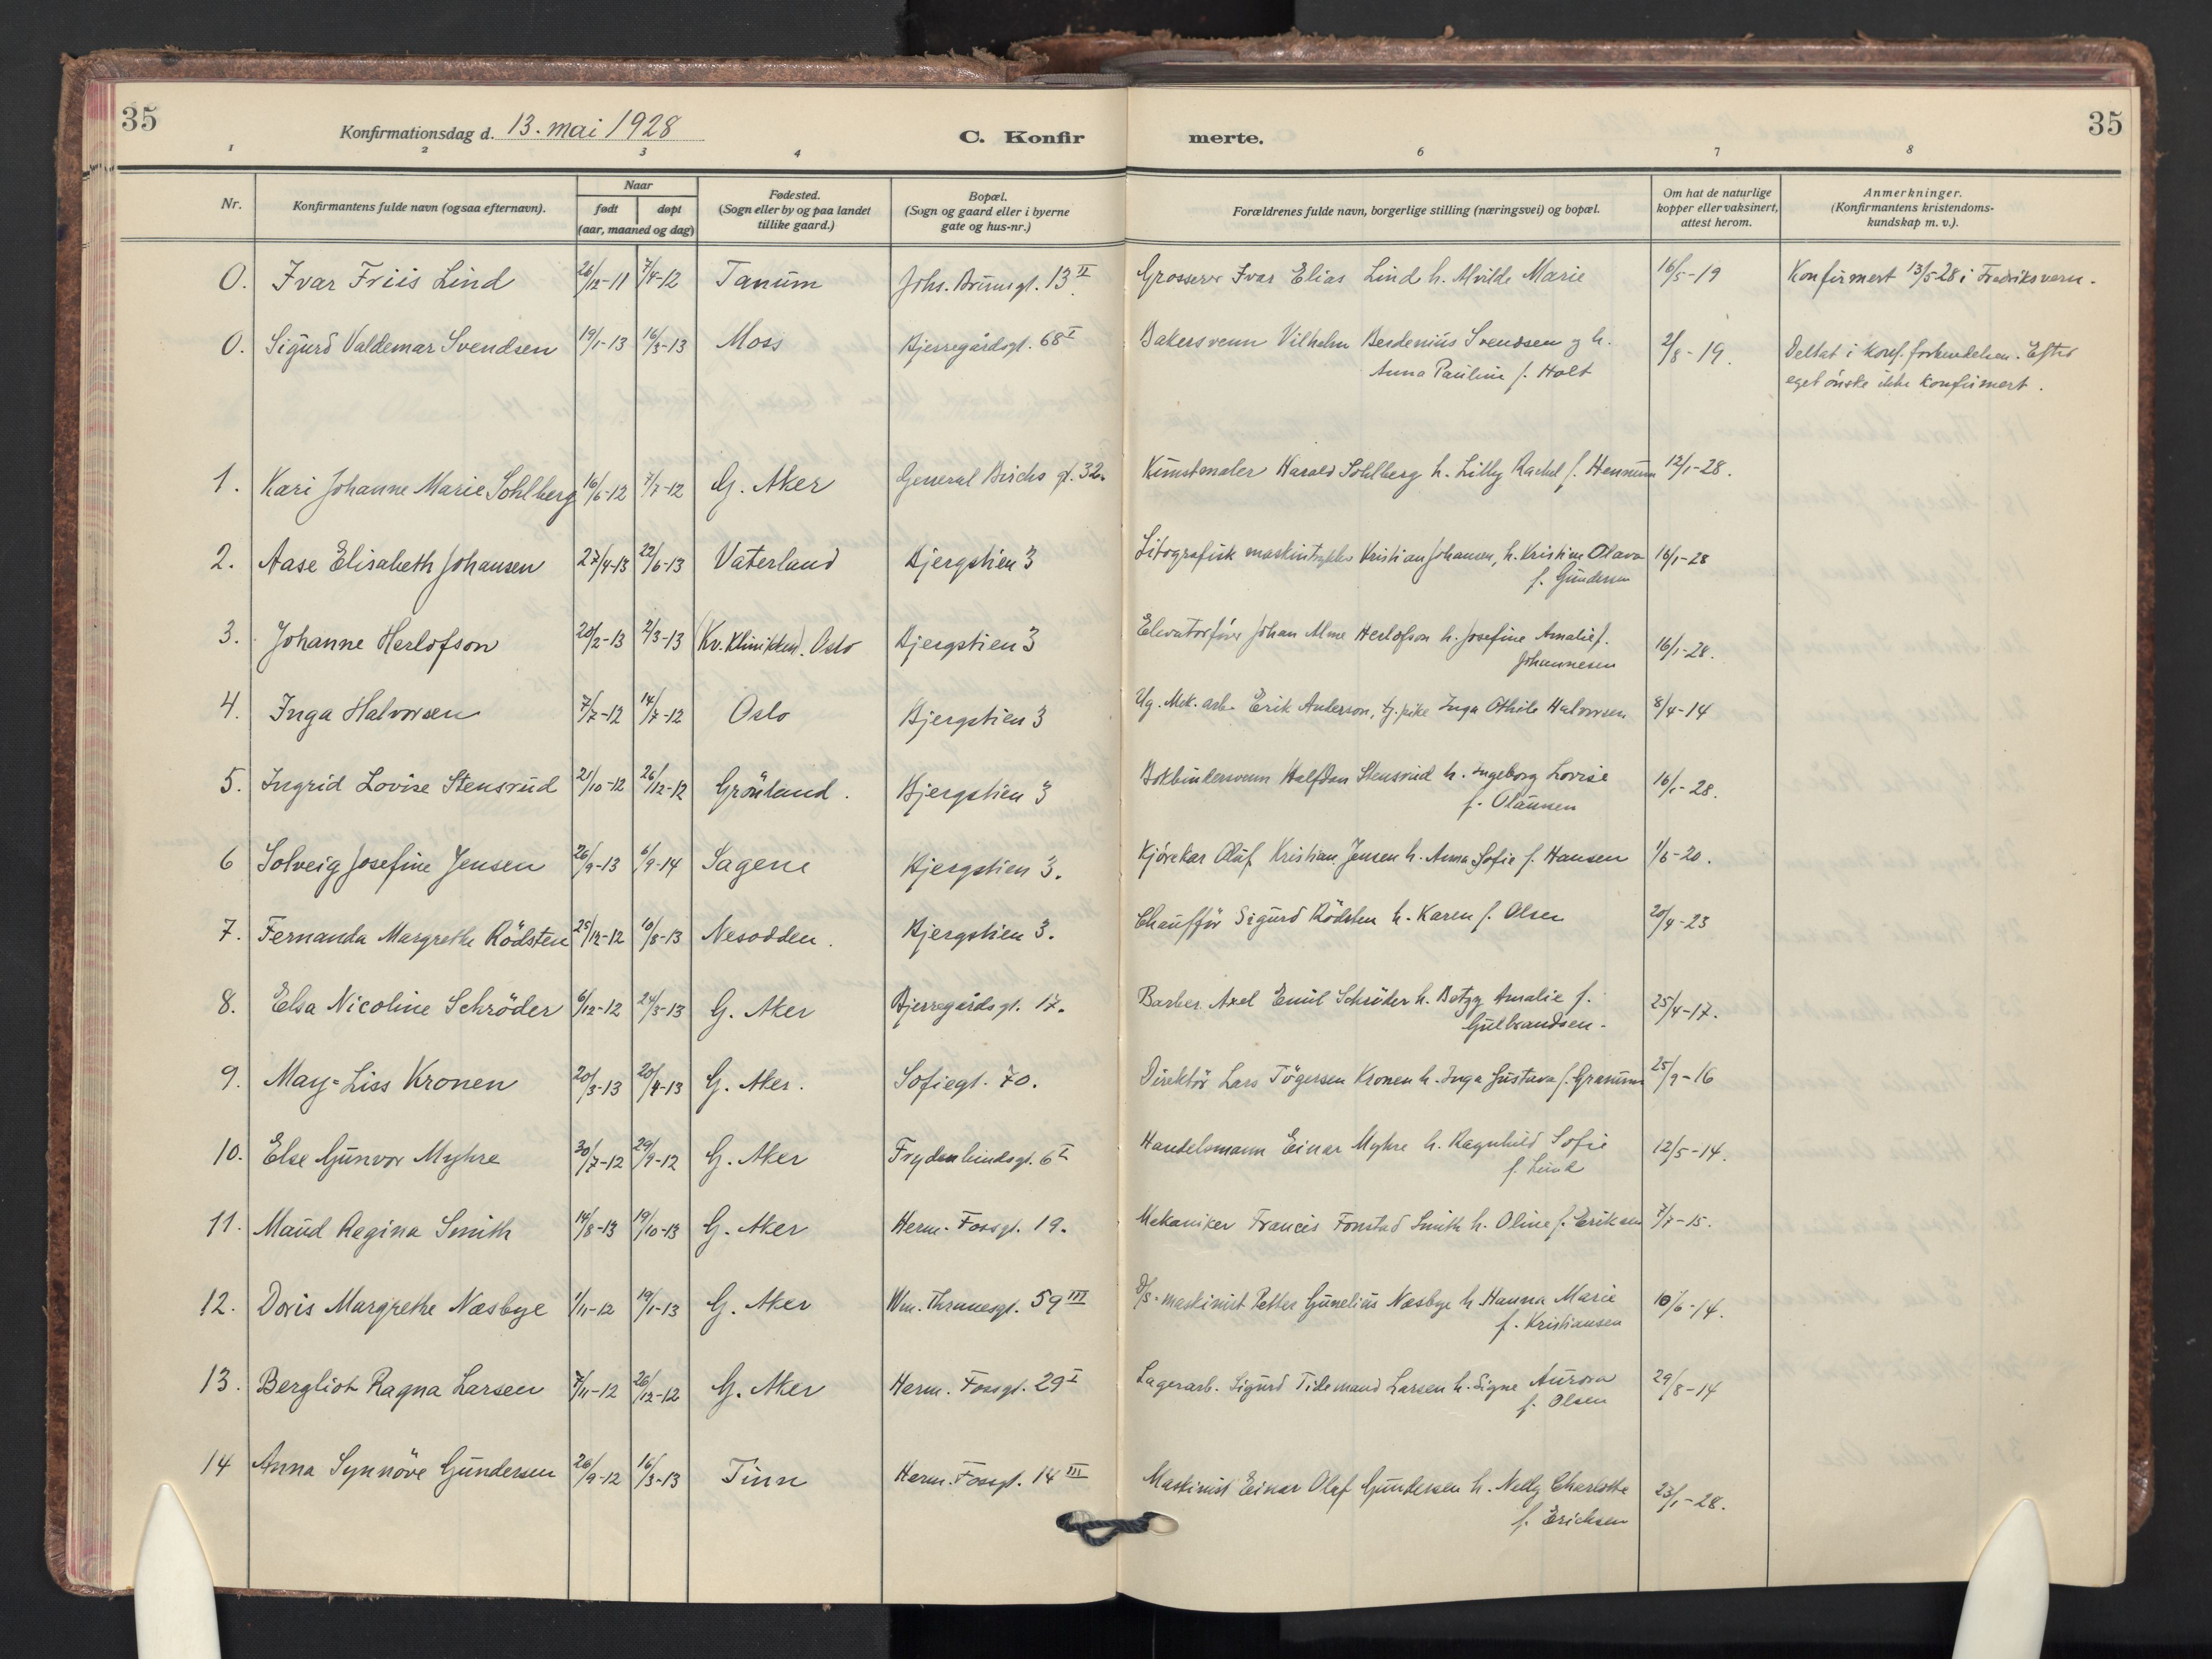 35
Konfirmationsdag d. 13. mai 1928
C. Konfir
merte.
35
1 2 3 4 6 7 8
Nr.
Konfirmantens fulde navn (ogsaa efternavn).
Naar
født døpt
(aar, maaned og dag)
Fødested.
(Sogn eller by og paa landet
tillike gaard.)
Bopæl.
(Sogn og gaard eller i byerne
gate og hus-nr.)
Forældrenes fulde navn, borgerlige stilling (næringsvei) og bopæl.
Om hat de naturlige
kopper eller vaksinert,
attest herom.
Anmerkninger.
(Konfirmantens kristendoms-
kundskap m. v.).
0. Ivar Friis Lind 26/12-11 7/4-12 Tanum Johs. Brunsgt. 13 II Grosserer Ivar Elias Lind h. Alvilde Marie 16/5-19 Konfirmert 13/5-28 i Fredriksvern.
0. Sigurd Valdemar Svendsen 19/1-13 16/3-13 Moss Bjerregårdsgt. 68 I Bakersvenn Vilhelm Berdenius Svendsen og h. 2/8-19. Deltat i konf. forberedelsen. Efter
Anna Pauline f. Holt eget ønske ikke konfirmert.
1. Kari Johanne Marie Sohlberg 16/6-12 7/7-12 G. Aker General Birchs gt. 32. Kunstmaler Harald Sohlberg h. Lilly Rachel f. Hennum 12/1-28.
2. Aase Elisabeth Johansen 27/4-13 22/6-13 Vaterland Bjergstien 3 Litografisk maskintrykker Kristian Johansen, h. Kristine Olava 16/1-28
f. Gundersen
3. Johanne Herlofson 20/2-13 2/3-13 (Kv. klinikken). Oslo Bjergstien 3 Elevatorfører Johan Alme Herlofson h. Josefine Amalie f. 16/1-28.
Johannesen
4. Inga Halvorsen 7/7-12 14/7-12 Oslo Bjergstien 3 Ug. Mek. arb. Erik Anderson, tj. pike Inga Othile Halvorsen 8/4-14
5. Ingrid Lovise Stensrud 21/10-12 26/12-12 Grönland. Bjergstien 3 Bokbindersvenn Halfdan Stensrud h. Ingeborg Lovise 16/1-28.
f. Olaussen
6 Solveig Josefine Jensen 26/9-13 6/9-14 Sagene Bjergstien 3. Kjörekar Oluf Kristian Jensen h. Anna Sofie f. Hansen 1/6-20.
7. Fernanda Margrethe Rödsten 25/12-12 10/8-13 Nesodden. Bjergstien 3. Chauffør Sigurd Rödsten h. Karen f. Olsen 20/4-23
8. Elsa Nicoline Schröder 6/12-12 24/3-13 G. Aker Bjerregårdsgt. 17. Barber. Axel Emil Schröder h. Betzy Amalie f. 25/4-17.
Gulbrandsen.
9. May-Liss Kronen 20/3-13 20/4-13 G. Aker. Sofiegt. 70. Direktör Lars Tögersen Kronen h. Inga Gustava f. Granum 25/9-16
10. Else Gunvor Myhre 30/7-12 29/9-12 G. Aker Frydenlundsgt. 6 I Handelsmann Einar Myhre h. Ragnhild Sofie 12/5-14.
f. Lind
11. Maud Regina Smith 14/8-13 19/10-13 G. Aker Herm. Fossgt. 19. Mekaniker Francis Fonstad Smith h. Oline f. Eriksen 7/7-15.
12. Doris Margrethe Næsbye 1/11-12 19/1-13 G. Aker Wm. Thranesgt. 59 III D/S-maskinist Petter Gunelius Næsbye h Hanna Marie 10/6-14.
f. Kristiansen
13. Bergliot Ragna Larsen 7/11-12 26/12-12 G. Aker Herm. Fossgt. 29 I Lagerarb. Sigurd Tidemand Larsen h. Signe Aurora 29/8-14
f. Olsen
14 Anna Synnöve Gundersen 26/9-12 16/3-13 Tinn Herm. Fossgt. 14 III Maskinist Einar Olaf Gundersen h. Nelly Charlotte 23/1-28.
f. Erichsen